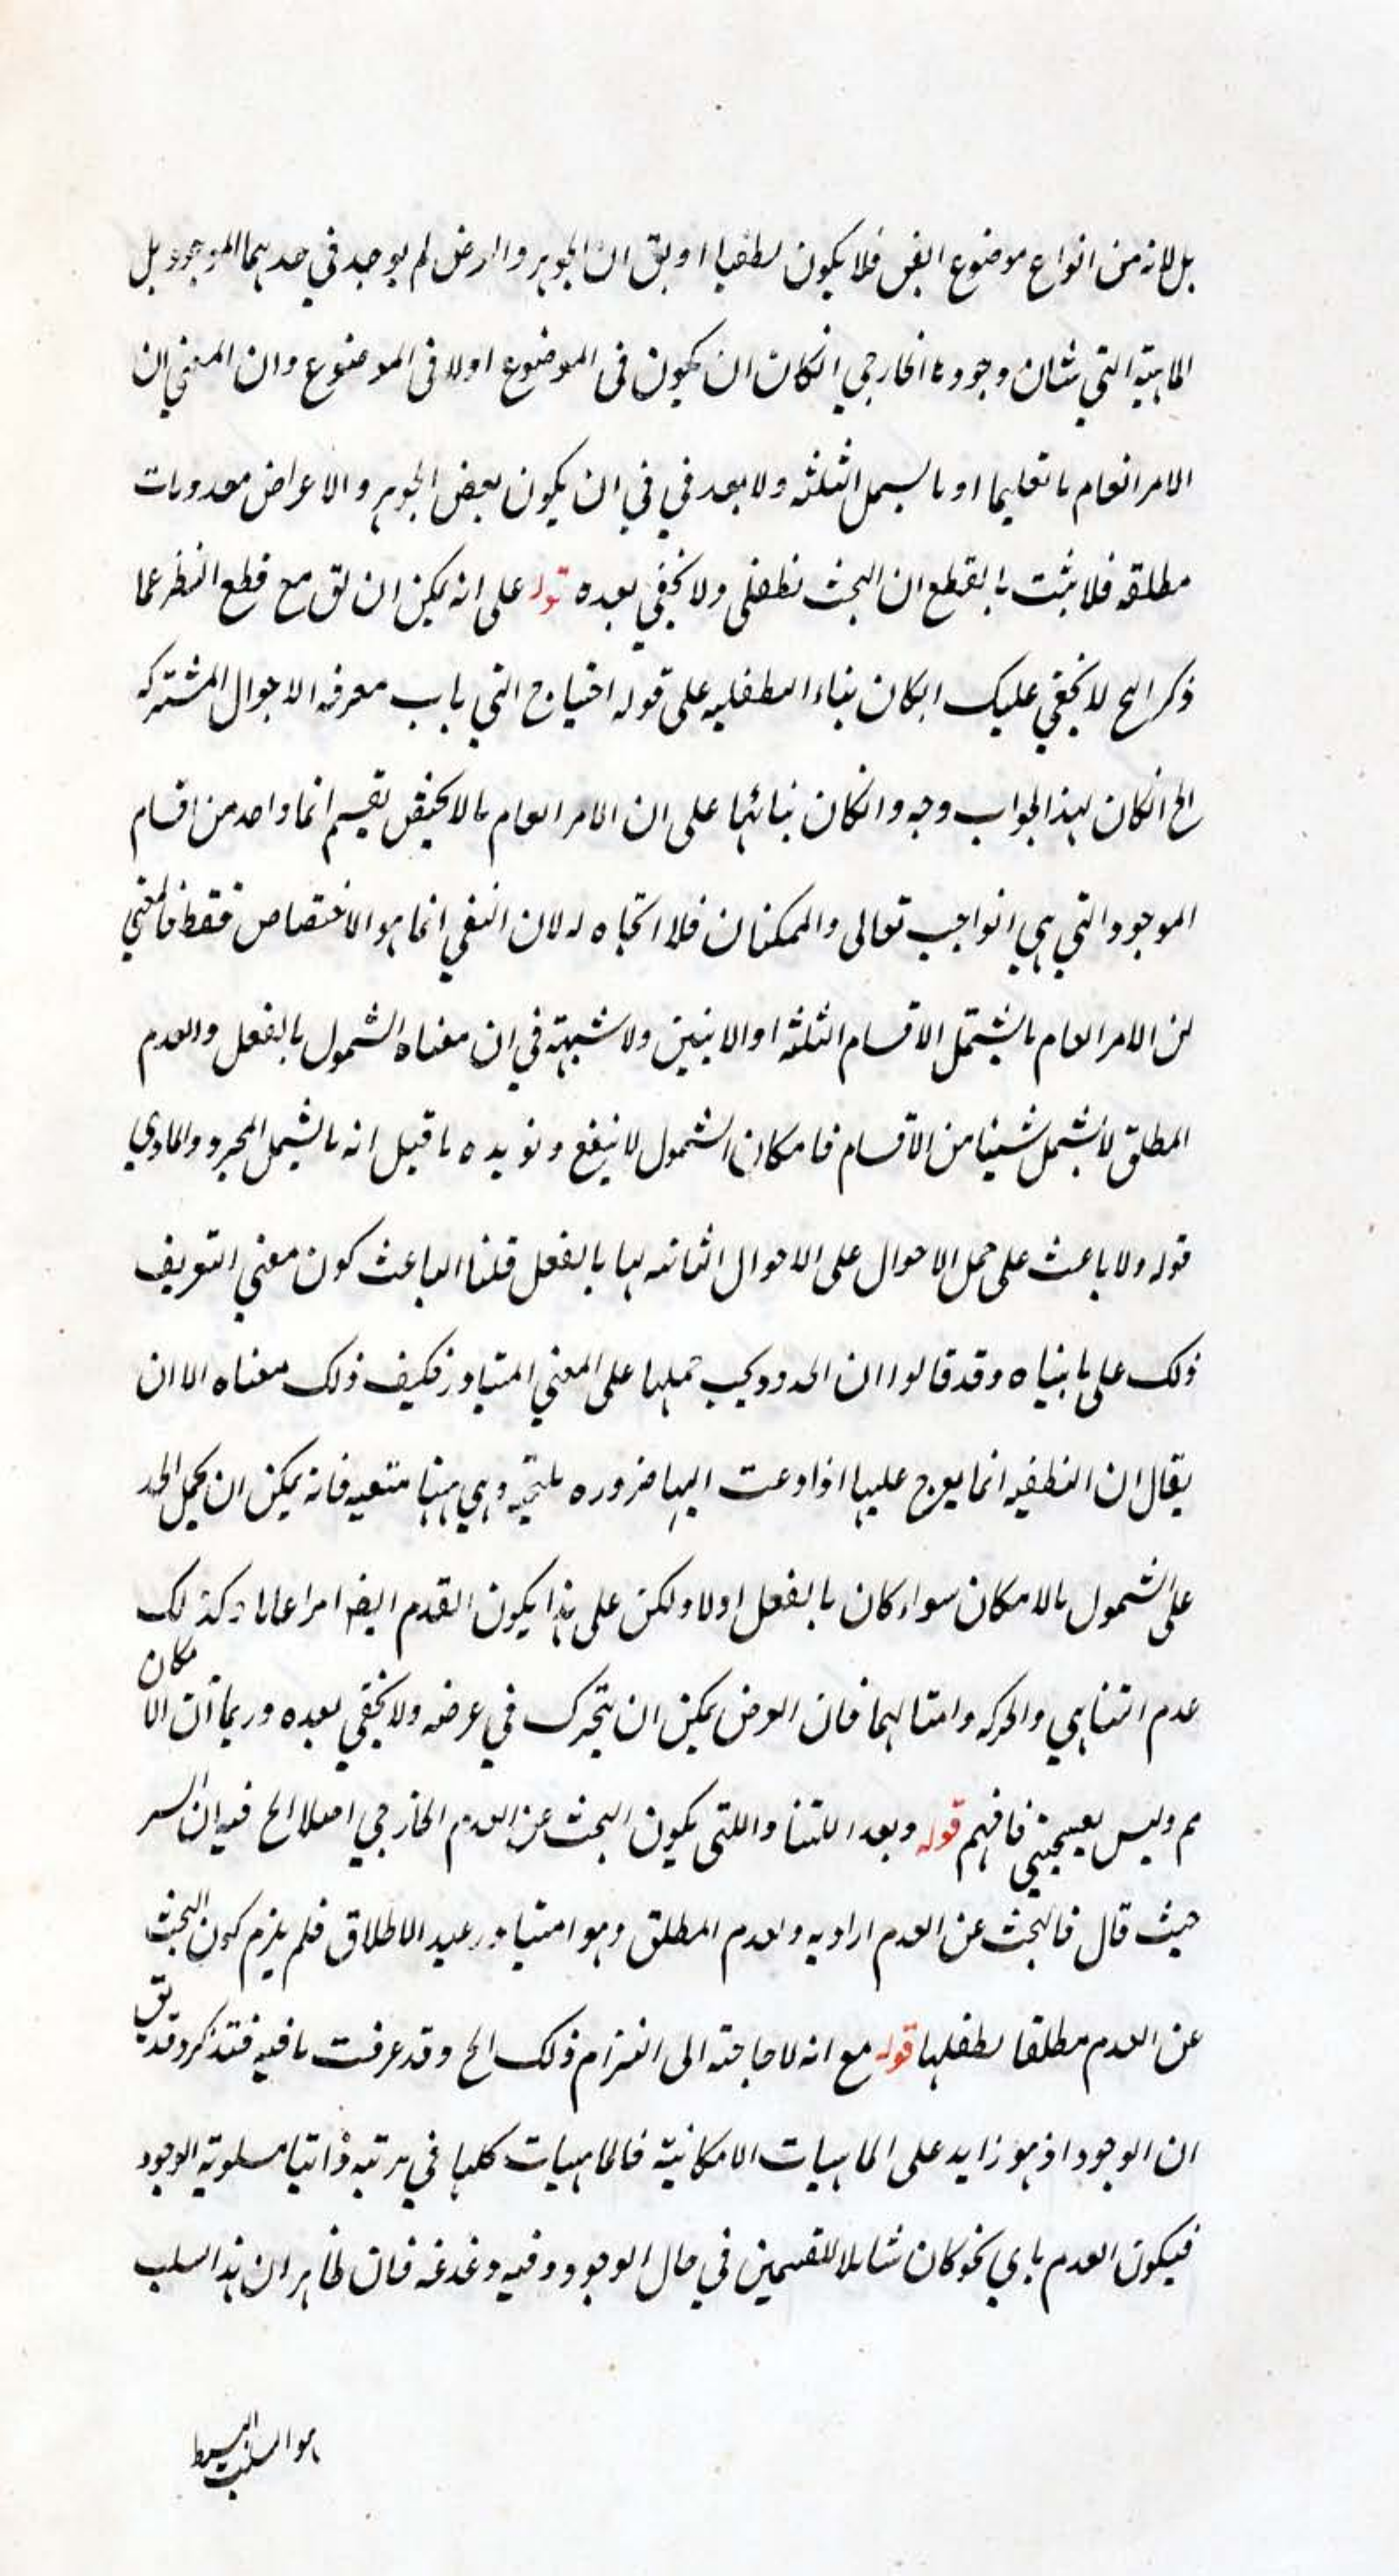 بل لانه من انواع موضوع الفن فلا يكون تطفليا او يق ان الجوهر والعرض لم يوجد في حديهما الموجود بل
الماهية التي شان وجودها الخارجي انكان ان يكون في الموضوع اولا في الموضوع وان المعني ان
الامر العام ما تعليما او ما يشمل الثلثه ولا بعد في في ان يكون بعض الجوهر و الاعراض معدومات
مطلقه فلا يثبت بالقطع ان البحث تطفلى ولا يخفي بعده قوله على انه يمكن ان يق مع قطع النظر عما
ذكر الخ لا يخفي عليك انكان بناء التطفليه على قوله احتياج التي باب معرفه الاحوال المشتركه
الخ انكان لهذا الجواب وجه وانكان بنائها على ان الامر العام ما لا يختص بقسم انما واحد من اقسام
الموجود التي هي الواجب تعالى والممكنان فلا اتجاه له لان النفي انما هو الاختصاص فقط فالمعني
ان الامر العام ما يشتمل الاقسام الثلثه او الاثنين ولا شبهة في ان معناه الشمول بالفعل والعدم
المطلق لا يشمل شيئا من الاقسام فامكان الشمول لا ينفع ونويده ما قيل انه ما يشمل المجرد والمادي
قوله ولا باعث على حمل الاحوال على الاحوال الثابته لها بالفعل قلنا الباعث كون معني التعريف
ذلك على ما بيناه وقد قالوا ان الحدود يجب حملها على المعني المتبادر فكيف ذلك معناه الا ان
يقال ان التطفيه انما يعرج عليها اذا دعت اليها ضروره ملتجيه وهي ههنا منتفيه فانه يمكن ان يحمل الحد
على الشمول بالامكان سواء كان بالفعل اولا ولكن على هذا يكون القدم ايضا امرا عاما وكذلك
عدم التناهي والحركه وامثالهما فان العرض يمكن ان يتحرك في عرضه ولا يخفي بعده وربما ان الامكان
م وليس بعيجبني فافهم قوله وبعد اللتيا واللتى يكون البحث عن العدم الخارجي اصلا الخ فيه ان السر
حيث قال فالبحث عن العدم اراد به والعدم المطلق وهو المتبادر عيد الاطلاق فلم يلزم كون البحث
عن العدم مطلقا تطفلها قوله مع انه لا حاجته الى التزام ذلك الخ وقد عرفت ما فيه فتذكر وقد يق
ان الوجود اذ هو زايد على الماهيات الامكانية فالماهيات كلها في مرتبه ذاتيا مسلوبة الوجود
فيكون العدم باي نحو كان شاملا للقسمين في حال الوجود وفيه دغدغه فان ظاهر ان هذا السلب
هو السلب البسيط